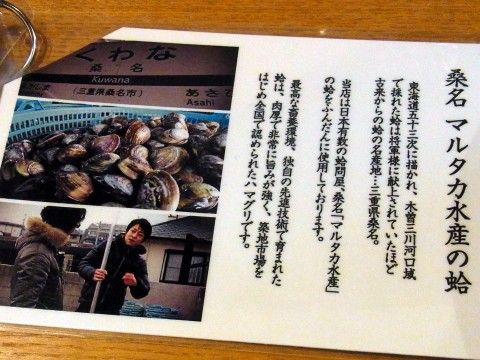 桑名 マルタカ水産の蛤
東海道五十三次に描かれ、木曽三川河口域
で採れた蛤は将軍様に献上されていたほど
古来からの蛤の名産地…三重県桑名。
当店は日本有数の蛤問屋、桑名「マルタカ水産」
の蛤をふんだんに使用しております。
最高な畜養環境、独自の先進技術で育まれた
蛤は、肉厚で非常に旨みが強く、築地市場を
はじめ全国で認められたハマグリです。
くわな
桑名
Kuwana
(三重県桑名市)
あさひ
Asahi